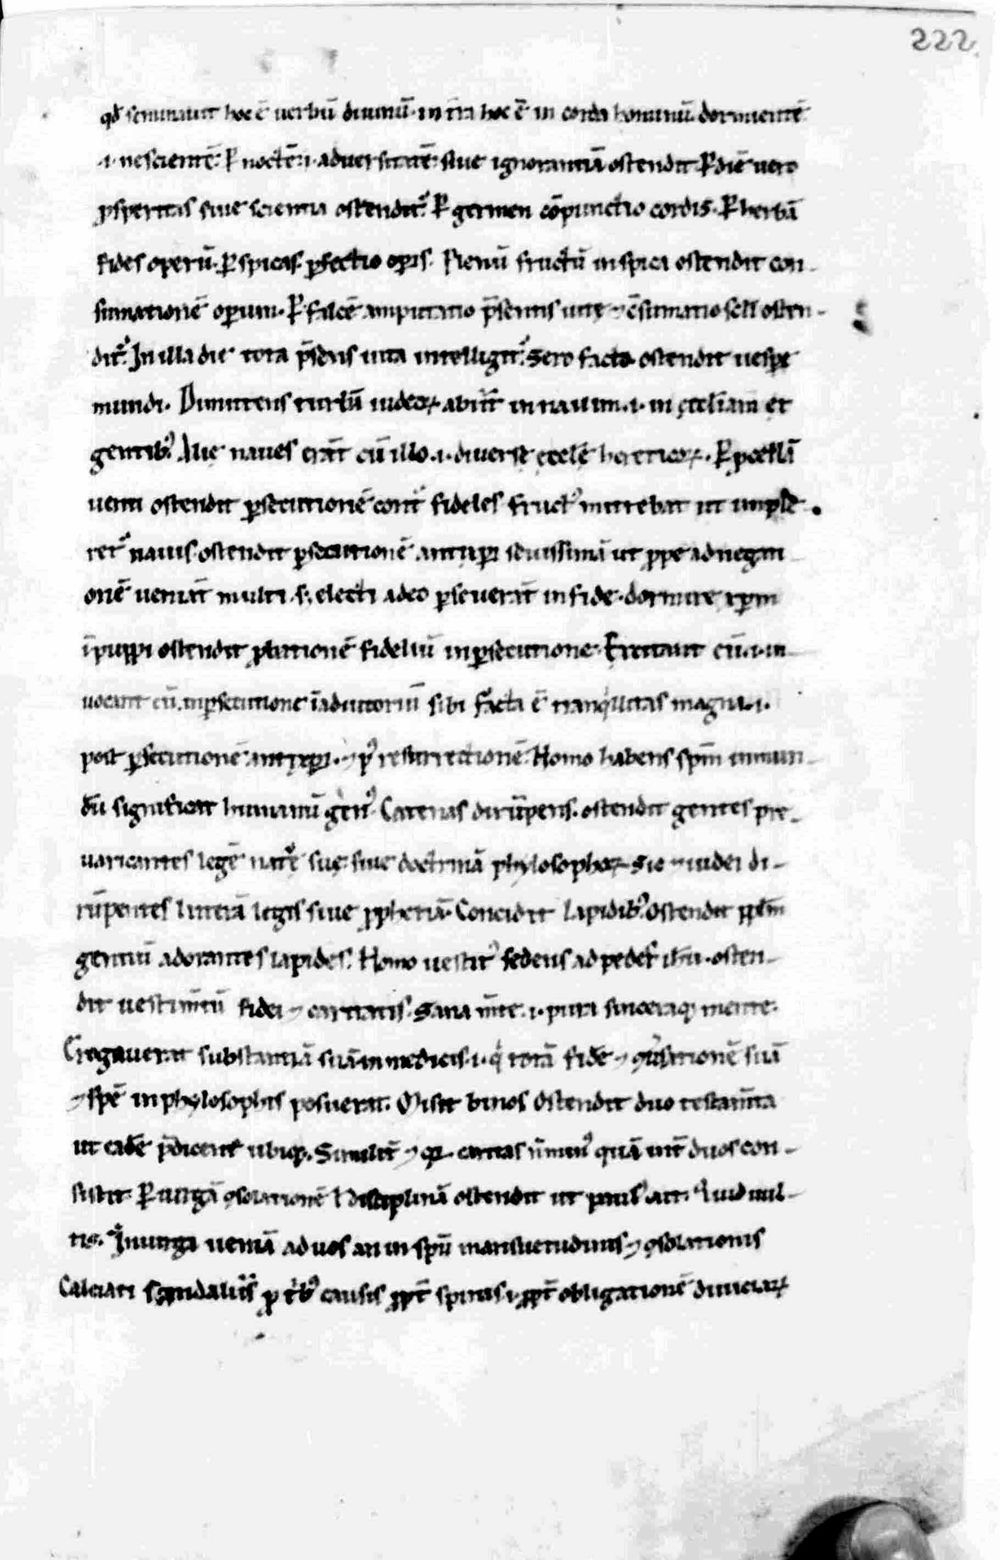 222
qđ seminauit hoc ē uerbū diuinū· in t̄ra hoc ē in corda hominū dormientē
·i· nescientē: ꝑ noctē ·i· aduersitatē siue ignorantiā ostendit ꝑ diē uero
ꝓsperitas siue scientia ostendit᷑· ꝑ germen cōpunctio cordis· ꝑ herbā
fides operū· ꝑ spicas ꝑfectio oꝑis· Plenū fructū in spica ostendit con-
sumationē oꝑum· ꝑ falcē amputatio p̄sentis uitę ⁊ c̄sumatio scl̄i osten-
dit᷑· In illa die tota p̄sens uita intelligit᷑· Sero facto ostendit uesꝑe
mundi· Dimittens turbā iudeoꝝ abiit in nauim ·i· in ęccl̄iam et
gentibꝰ Alię naues erāt cū illo ·i· diuersę ęcclē hereticoꝝ· ꝑ ꝓcellā
uenti ostendit ꝑsecutionē cont᷑ fideles fluctꝰ mittebat ut imple-
ret᷑ nauis ostendit ꝑsecutionē antixp̄i seuissimā ut ꝓpe ad negati-
onē ueniāt multi· s; electi adeo ꝑseuerāt in fide· dormire xp̄m
ī puppi ostendit ꝓlationē fideliū in ꝑsecutione· Excitant eū ·i· in-
uocant eū in ꝑsecutione ī adiutoriū sibi facta ē tranquillitas magna ·i·
post ꝑsecutionē antixp̄i· ⁊ pꝰ resurrectionē· Homo habens sp̄m inmun-
dū significat humanū genꝰ Catenas dirūpens· ostendit gentes pre-
uaricantes legē nat᷑ę suę siue doctrinā phylosophoꝝ sic ⁊ iudei di-
rūpentes litterā legis siue ꝓphetiā· Concidit lapidibꝰ· Ostendit ppl̄m
gentiū adorantes lapides· Homo uestitꝰ sedens ad pedes ih̄u· osten-
dit uestim̄tū fidei ⁊ caritatis· Sana m̄te ·i· pura sinceraqꝫ mente·
Erogauerat substantiā suā in medicis ·i· q̇ totā fidē ⁊ q̄stionē suā
⁊ spē in phylosophis posuerat· Misit binos Ostendit duo testam̄ta
ut eadē p̄dicent ubiqꝫ· Similit̄ ⁊ qꝛ caritas n̄ minꝰ quā int̄ duos con-
sistit ꝑ uirgā ꝯsolationē l disciplinā ostendit ut paulꝰ ait· Quid uul-
tis· In uirga ueniā ad uos an in sp̄u mansuetudinis ⁊ ꝯsolationis
Calciati sandaliis ꝓ t̄bꝰ causis ꝓpt̄ spinas ·i· ꝓpt̄ obligationē diuiciaꝝ